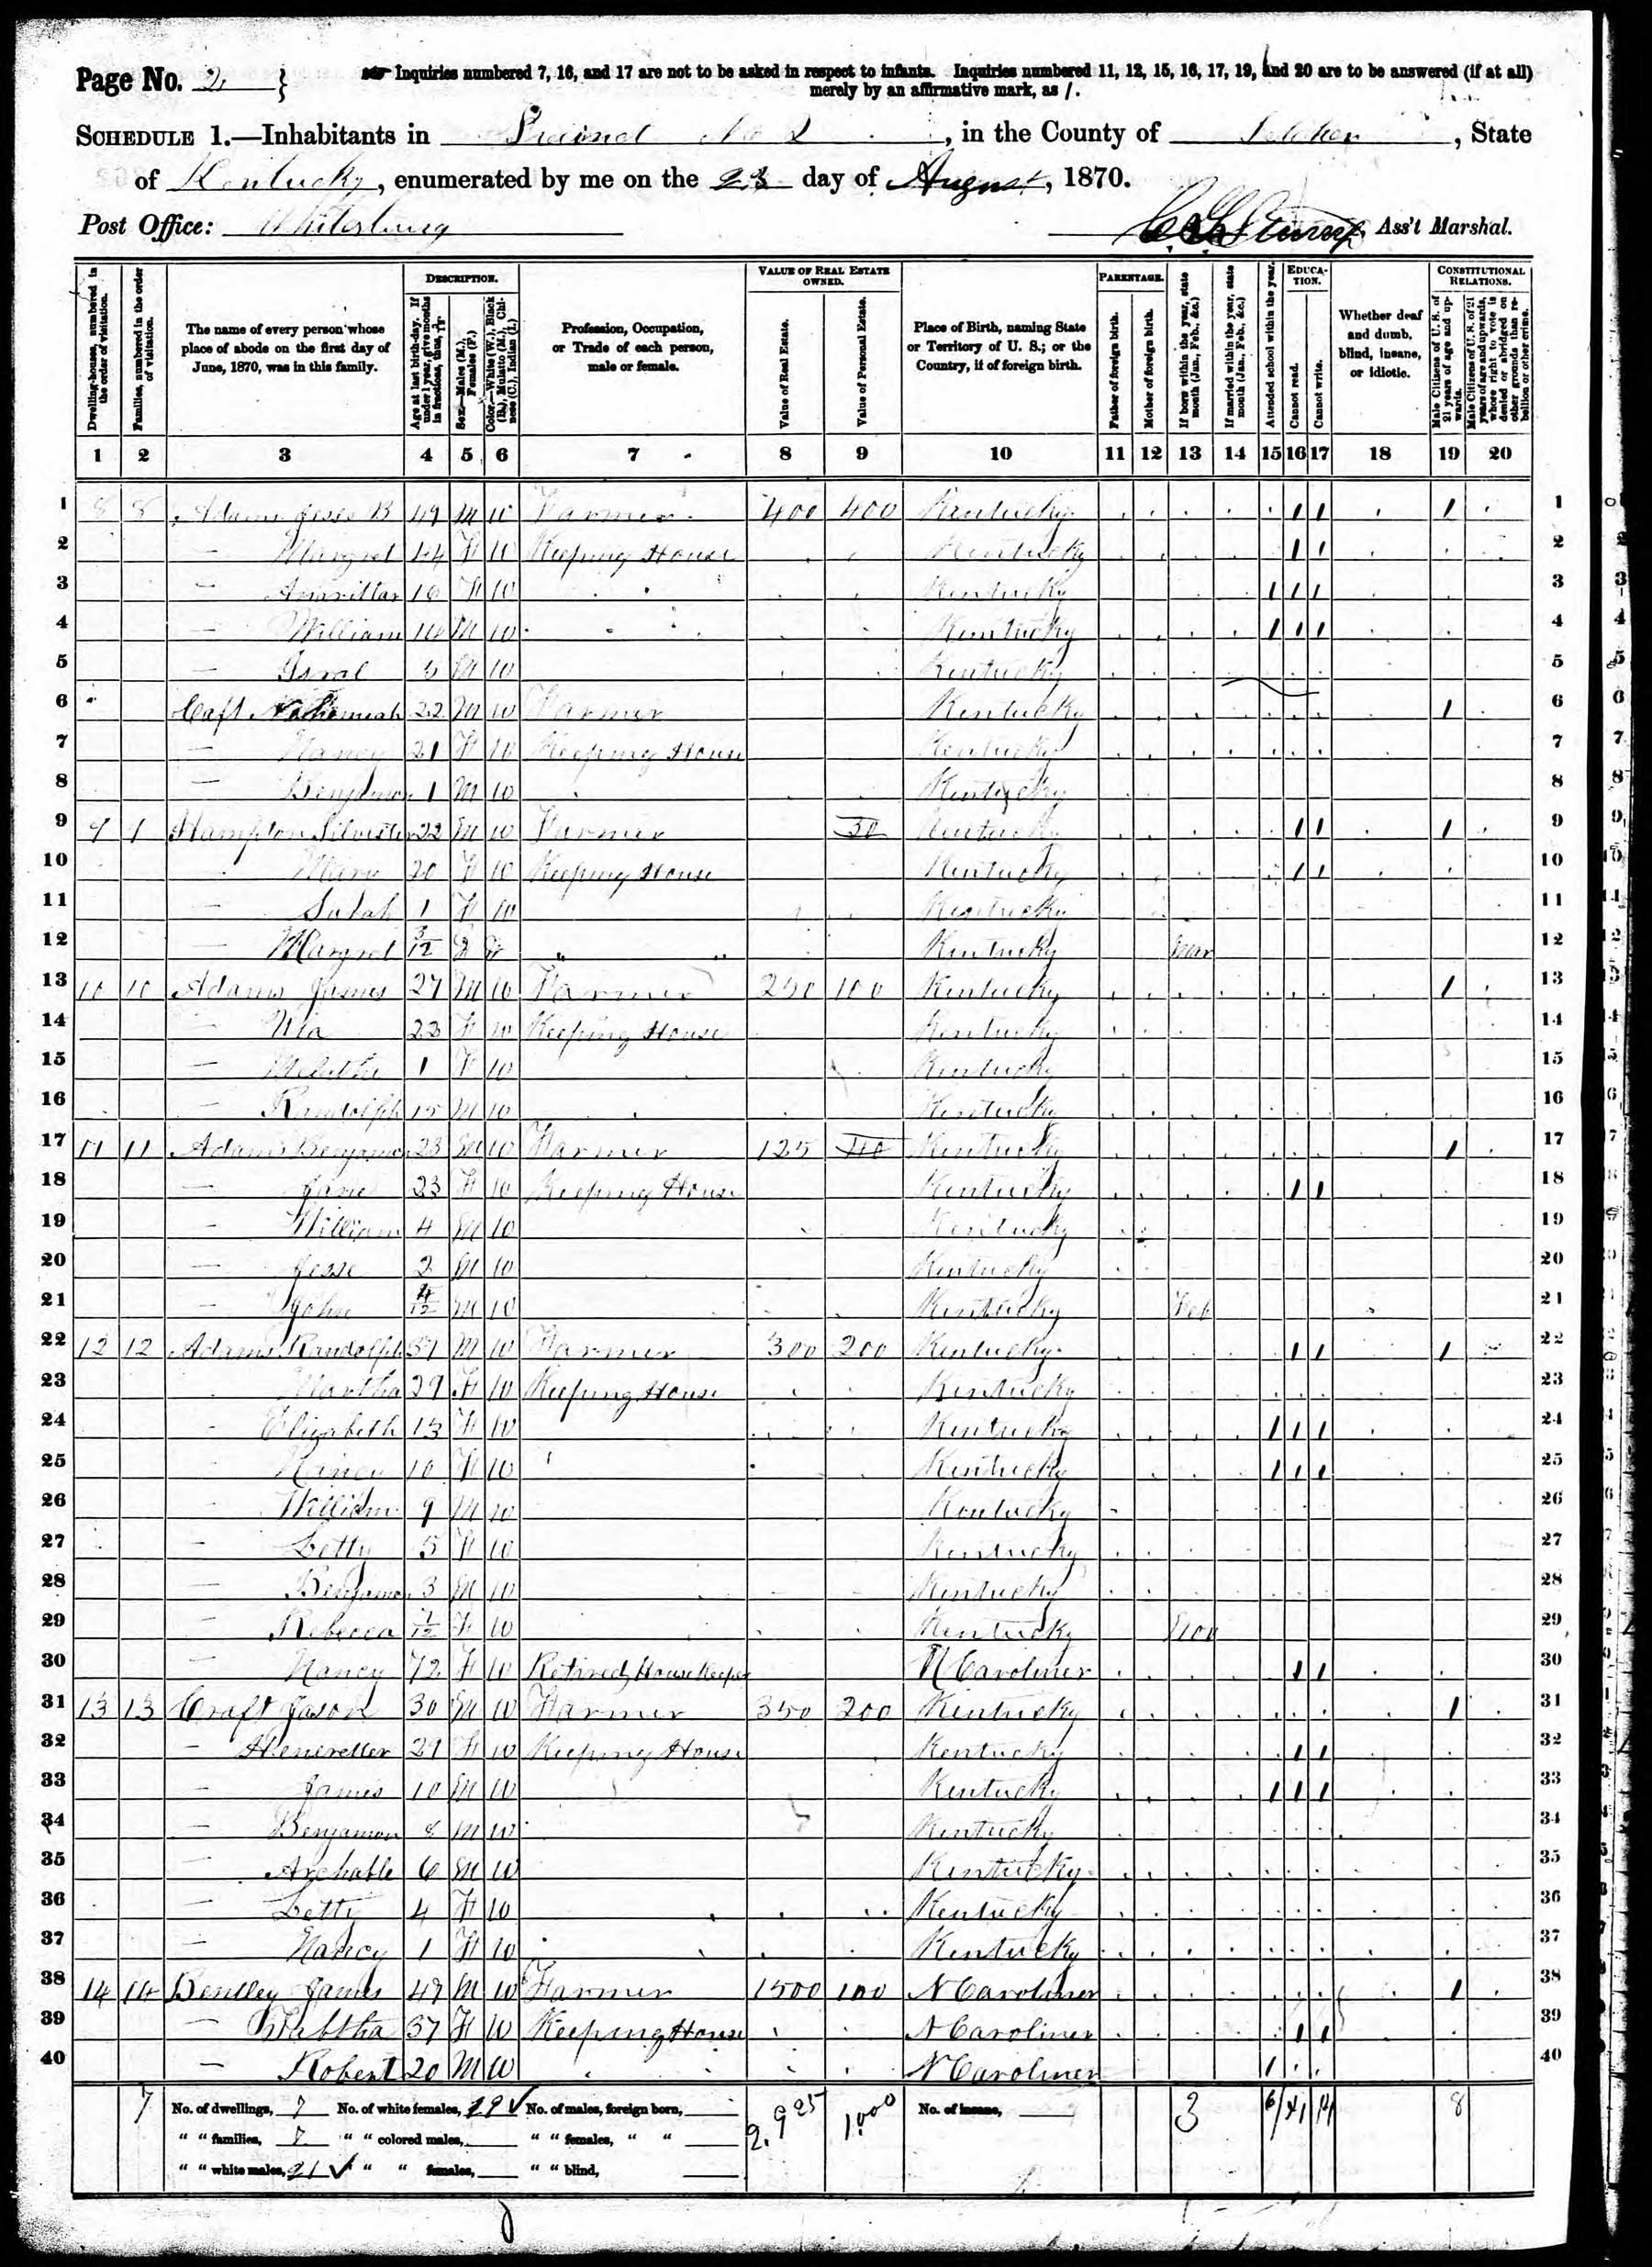 Page No. 2 }
Inquiries numbered 7, 16, and 17 are not to be asked in respect to infants. Inquiries numbered 11, 12, 15, 16, 17, 19, and 20 are to be answered (if at all)
merely by an affirmative mark, as /.
SCHEDULE 1.—Inhabitants in Precinct No 2, in the County of Letcher, State
of Kentucky, enumerated by me on the 23 day of August, 1870.
Post Office: Whitesburg Ass't Marshal.
DESCRIPTION. VALUE OF REAL ESTATE OWNED. PARENTAGE. EDUCATION. CONSTITUTIONAL RELATIONS.
Dwelling-houses, numbered in the order of visitation.
Families, numbered in the order of visitation.
The name of every person whose place of abode on the first day of June, 1870, was in this family.
Age at last birth-day. If under 1 year, give months in fractions, thus, 3/12.
Sex.—Males (M.), Females (F.)
Color.—White (W.), Black (B.), Mulatto (M.), Chinese (C.), Indian (I.)
Profession, Occupation, or Trade of each person, male or female.
Value of Real Estate.
Value of Personal Estate.
Place of Birth, naming State or Territory of U. S.; or the Country, if of foreign birth.
Father of foreign birth.
Mother of foreign birth.
If born within the year, state month (Jan., Feb., &c.)
If married within the year, state month (Jan., Feb., &c.)
Attended school within the year.
Cannot read.
Cannot write.
Whether deaf and dumb, blind, insane, or idiotic.
Male Citizens of U. S. of 21 years of age and upwards.
Male Citizens of U. S. of 21 years of age and upwards, whose right to vote is denied or abridged on other grounds than rebellion or other crime.
1 2 3 4 5 6 7 8 9 10 11 12 13 14 15 16 17 18 19 20
1 8 8 Adams Jesse B 49 M W Farmer 400 400 Kentucky / / / 1
2 — Margret 44 F W Keeping House Kentucky / / 2
3 — 16 F W Kentucky / / / 3
4 — William 14 M W Kentucky / / / 4
5 — Isral 5 M W Kentucky 5
6 Caft Nathemiah 22 M W Farmer Kentucky / 6
7 — Nancy 21 F W Keeping House Kentucky 7
8 — Benjamon 1 M W Kentucky 8
9 9 9 Hampton Silvester 22 M W Farmer 30 Kentucky / / / 9
10 Mary 20 F W Keeping House Kentucky / / 10
11 — 1 F W Kentucky 11
12 — Margret 3/12 F W Kentucky Mar 12
13 10 10 Adams James 27 M W Farmer 250 100 Kentucky / 13
14 — 23 F W Keeping House Kentucky 14
15 — 1 F W Kentucky 15
16 — Randolph 15 M W Kentucky 16
17 11 11 Adams Benjamon 23 M W Farmer 125 Kentucky / 17
18 — Jane 23 F W Keeping House Kentucky / / 18
19 — William 4 M W Kentucky 19
20 — Jesse 2 M W Kentucky 20
21 — John 4/12 M W Kentucky Feb 21
22 12 12 Adams Randolph 37 M W Farmer 300 200 Kentucky / / / 22
23 Martha 29 F W Keeping House Kentucky 23
24 — Elizabeth 13 F W Kentucky / / / 24
25 — Nancy 10 F W Kentucky / / / 25
26 — William 9 M W Kentucky 26
27 — Letty 5 F W Kentucky 27
28 — Benjamon 3 M W Kentucky 28
29 — Rebecca F W Kentucky 29
30 — Nancy 72 F W Retired House Keeper N Caroliner / / 30
31 13 13 Craft Jason 30 M W Farmer 350 200 Kentucky / 31
32 — Heneretter 29 F W Keeping House Kentucky / / 32
33 — James 10 M W Kentucky / / / 33
34 — Benjamon 8 M W Kentucky 34
35 — Archable 6 M W Kentucky 35
36 — Letty 4 F W Kentucky 36
37 — Nancy 1 F W Kentucky 37
38 14 14 Bentley James 49 M W Farmer 1500 100 N Caroliner / 38
39 — Tabtha 37 F W Keeping House N Caroliner / / 39
40 — Robert 20 M W N Caroliner / 40
7 No. of dwellings, 7 No. of white females, 19 ✓ No. of males, foreign born, 2.925 1.000 No. of insane, 3 8
" " families, 7 " " colored males, " " females, " "
" " white males, 21 ✓ " " females, " " blind,